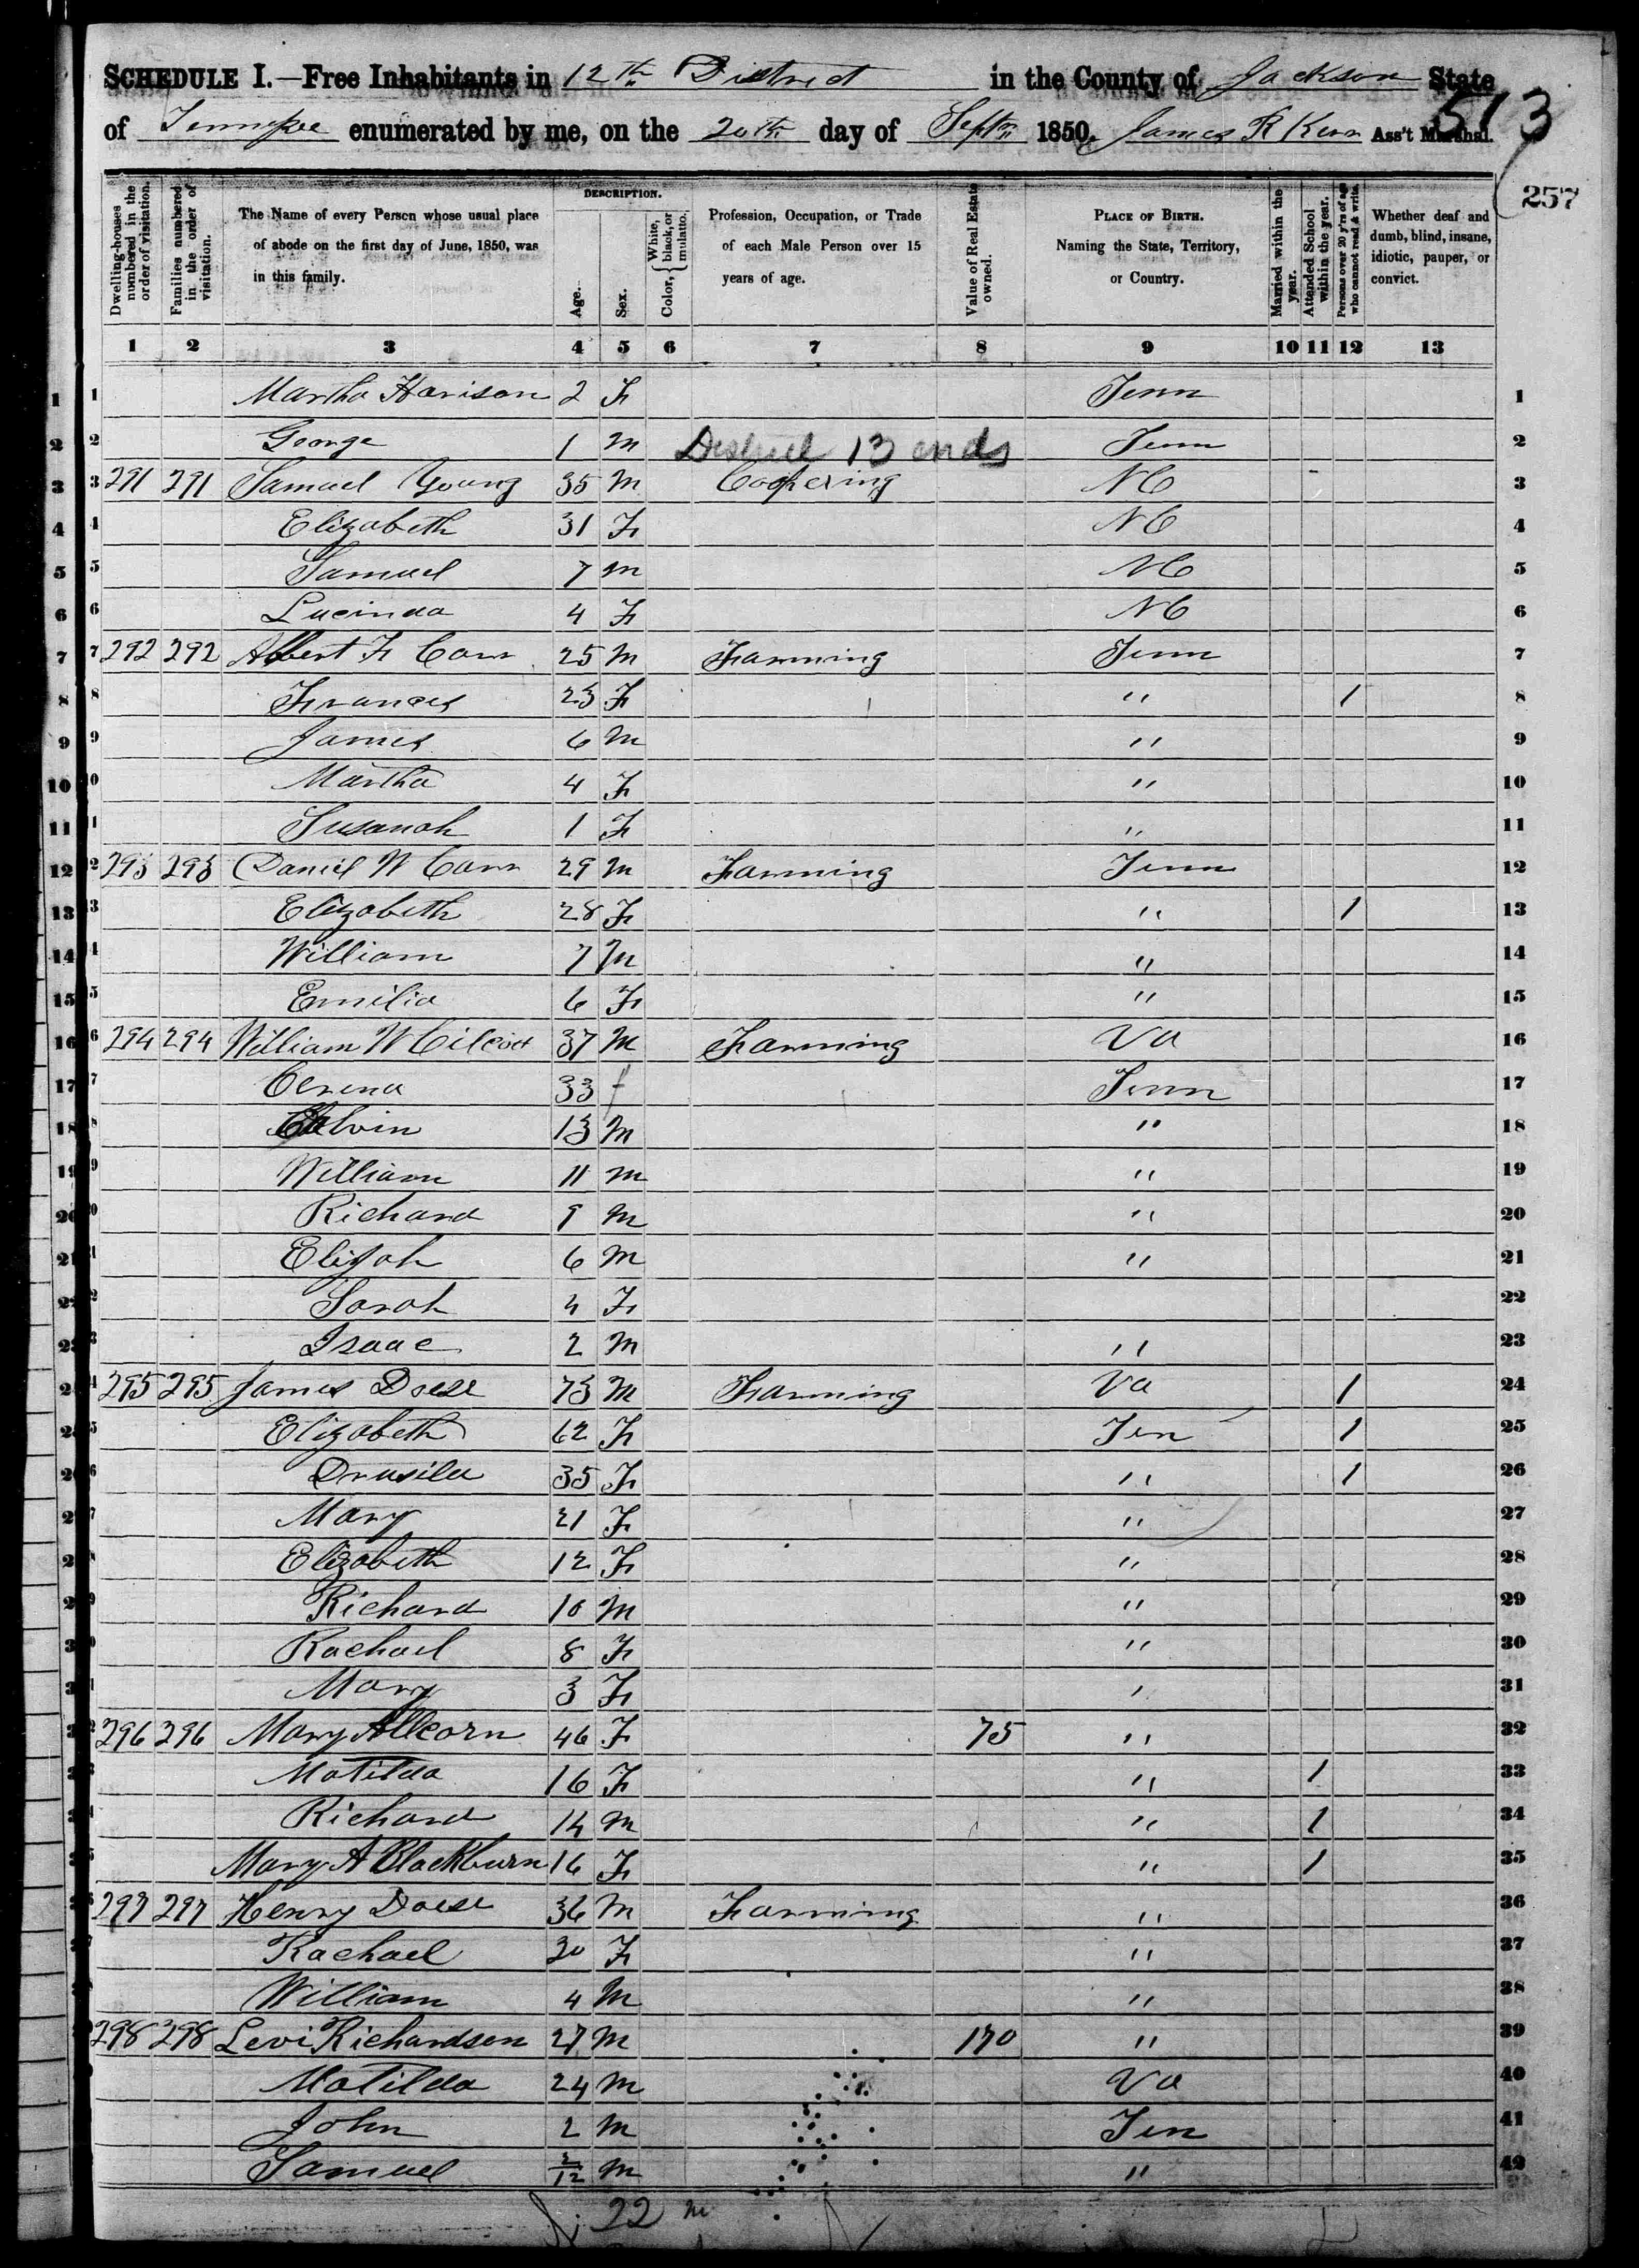 SCHEDULE I.—Free Inhabitants in 12th District in the County of Jackson State
of Tennessee enumerated by me, on the 20th day of Septr 1850. James R Kerr Ass't Marshal.
513
257
Dwelling-houses numbered in the order of visitation. Families numbered in the order of visitation. The Name of every Person whose usual place of abode on the first day of June, 1850, was in this family. DESCRIPTION. Age. Sex. Color, { White, black, or mulatto. Profession, Occupation, or Trade of each Male Person over 15 years of age. Value of Real Estate owned. PLACE OF BIRTH. Naming the State, Territory, or Country. Married within the year. Attended School within the year. Persons over 20 y'rs of age who cannot read & write. Whether deaf and dumb, blind, insane, idiotic, pauper, or convict.
1 2 3 4 5 6 7 8 9 10 11 12 13
1 Martha Harison 2 F Tenn 1
2 George 1 M District 13 ends Tenn 2
3 291 291 Samuel Young 35 M Coopering NC 3
4 Elizabeth 31 F NC 4
5 Samuel 7 M NC 5
6 Lucinda 4 F NC 6
7 292 292 Albert F Carr 25 M Farming Tenn 7
8 Frances 23 F " 1 8
9 James 6 M " 9
10 Martha 4 F " 10
11 Susanah 1 F " 11
12 293 293 Daniel W Carr 29 M Farming Tenn 12
13 Elizabeth 28 F " 1 13
14 William 7 M " 14
15 Emilia 6 F " 15
16 294 294 William W Cilcott 37 M Farming Va 16
17 Cerena 33 f Tenn 17
18 Calvin 13 M " 18
19 William 11 M " 19
20 Richard 9 M " 20
21 Elijah 6 M " 21
22 Sarah 4 F 22
23 Isaac 2 M " 23
24 295 295 James Doese 73 M Farming Va 1 24
25 Elizabeth 62 F Ten 1 25
26 Drusila 35 F " 1 26
27 Mary 21 F " 27
28 Elizabeth 12 F " 28
29 Richard 10 M " 29
30 Rachael 8 F " 30
31 Mary 3 F " 31
32 296 296 Mary Allcorn 46 F 75 " 32
33 Matilda 16 F " 1 33
34 Richard 14 M " 1 34
35 Mary A Blackburn 16 F " 1 35
36 297 297 Henry Doese 36 M Farming " 36
37 Rachael 30 F " 37
38 William 4 M " 38
39 298 298 Levi Richardson 27 M 170 " 39
Matilda 24 M Va 40
John 2 M Ten 41
Samuel 2/12 M " 42
22 m